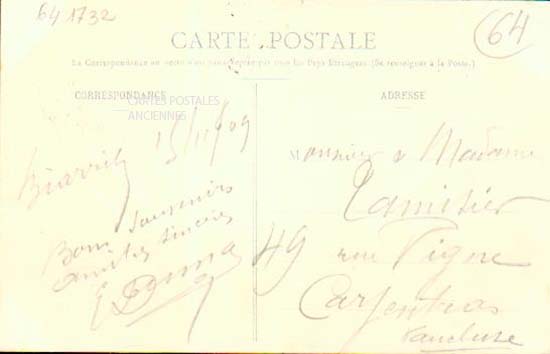 64 1732
64
CARTE POSTALE
La Correspondance au recto n'est pas acceptée par tous les Pays Étrangers (Se renseigner à la Poste.)
CORRESPONDANCE
CARTES POSTALES
ANCIENNES
Biarritz 15/11/09
Bons souvenirs
amitiés sincères
E
ADRESSE
Monsieur & Madame
Tamisier
49 rue Vigne
Carpentras
Vaucluse